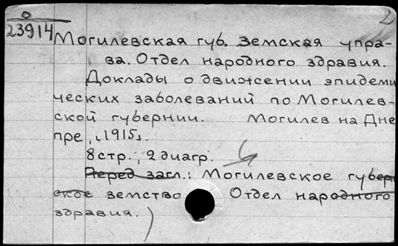 0
23914
2
Могилевская губ. земская упра-
ва. Отдел народного здравия.
Доклады о движении эпидеми
ческих заболеваний по Могилев-
ской губернии. Могилев на Дне
пре, [1915].
8 стр., 2 диагр.
Перед загл.: Могилевское губерн
ское земство Отдел народного
здравия.)